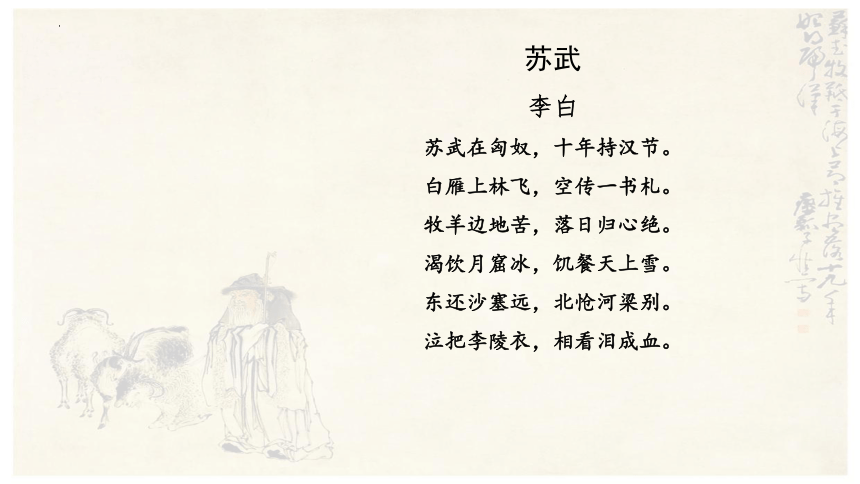 苏武
李白
苏武在匈奴，十年持汉节。
白雁上林飞，空传一书札。
牧羊边地苦，落日归心绝。
渴饮月窟冰，饥餐天上雪。
东还沙塞远，北怆河梁别。
泣把李陵衣，相看泪成血。